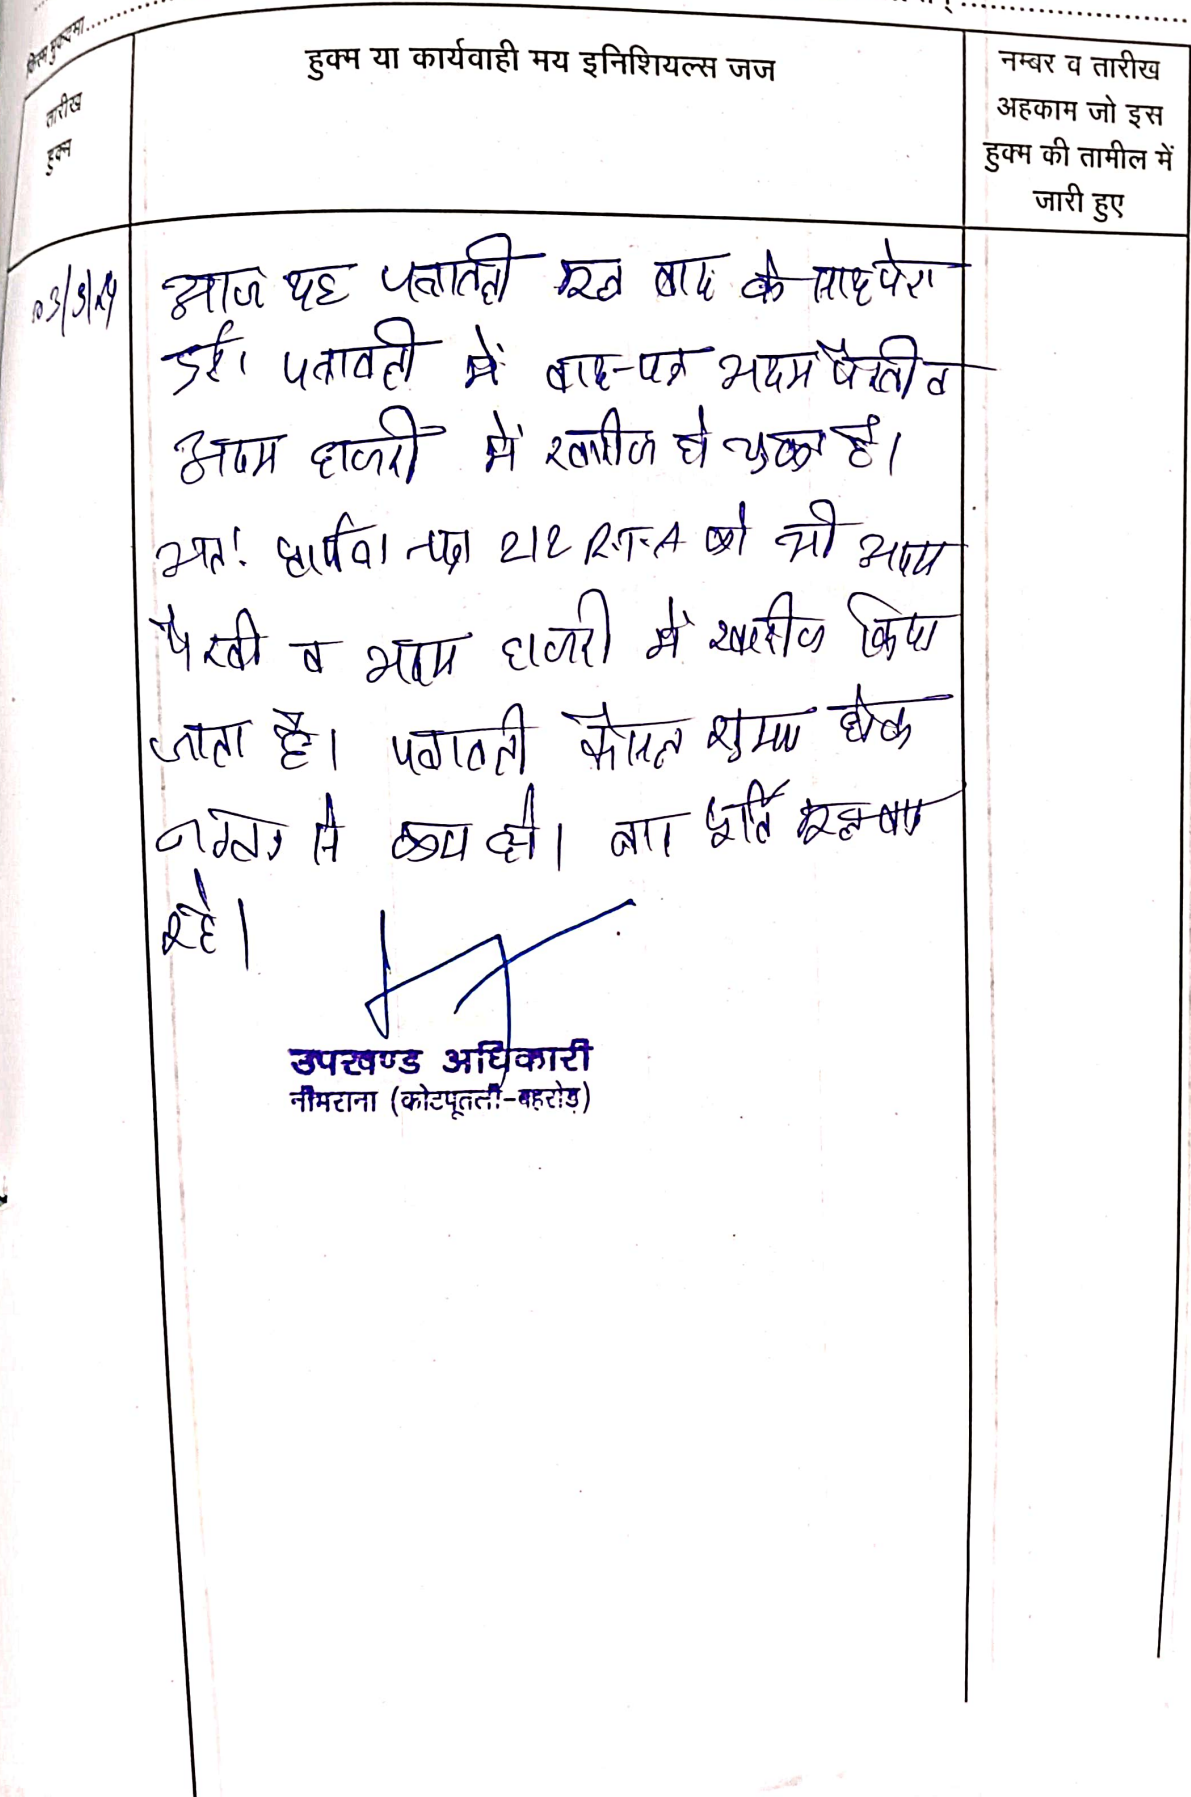 किस्म मुकदमा
तारीख
हुक्म
हुक्म या कार्यवाही मय इनिशियल्स जज
नम्बर व तारीख
अहकाम जो इस
हुक्म की तामील में
जारी हुए
आज यह पत्रावली मूल वाद के साथ पेश
हुई। पत्रावली में वाद-पत्र अदम पैरवी व
अदम हाजरी में खारीज हो चुका है।
अतः प्रार्थना पत्र 212 R.T.A को भी अदम
पैरवी व अदम हाजरी में खारीज किया
जाता है। पत्रावली फैसल शुमार होकर
नम्बर से कम हो। बाद पूर्ति मूल वाद
रहे।
उपखण्ड अधिकारी
नीमराना (कोटपूतली-बहरोड़)